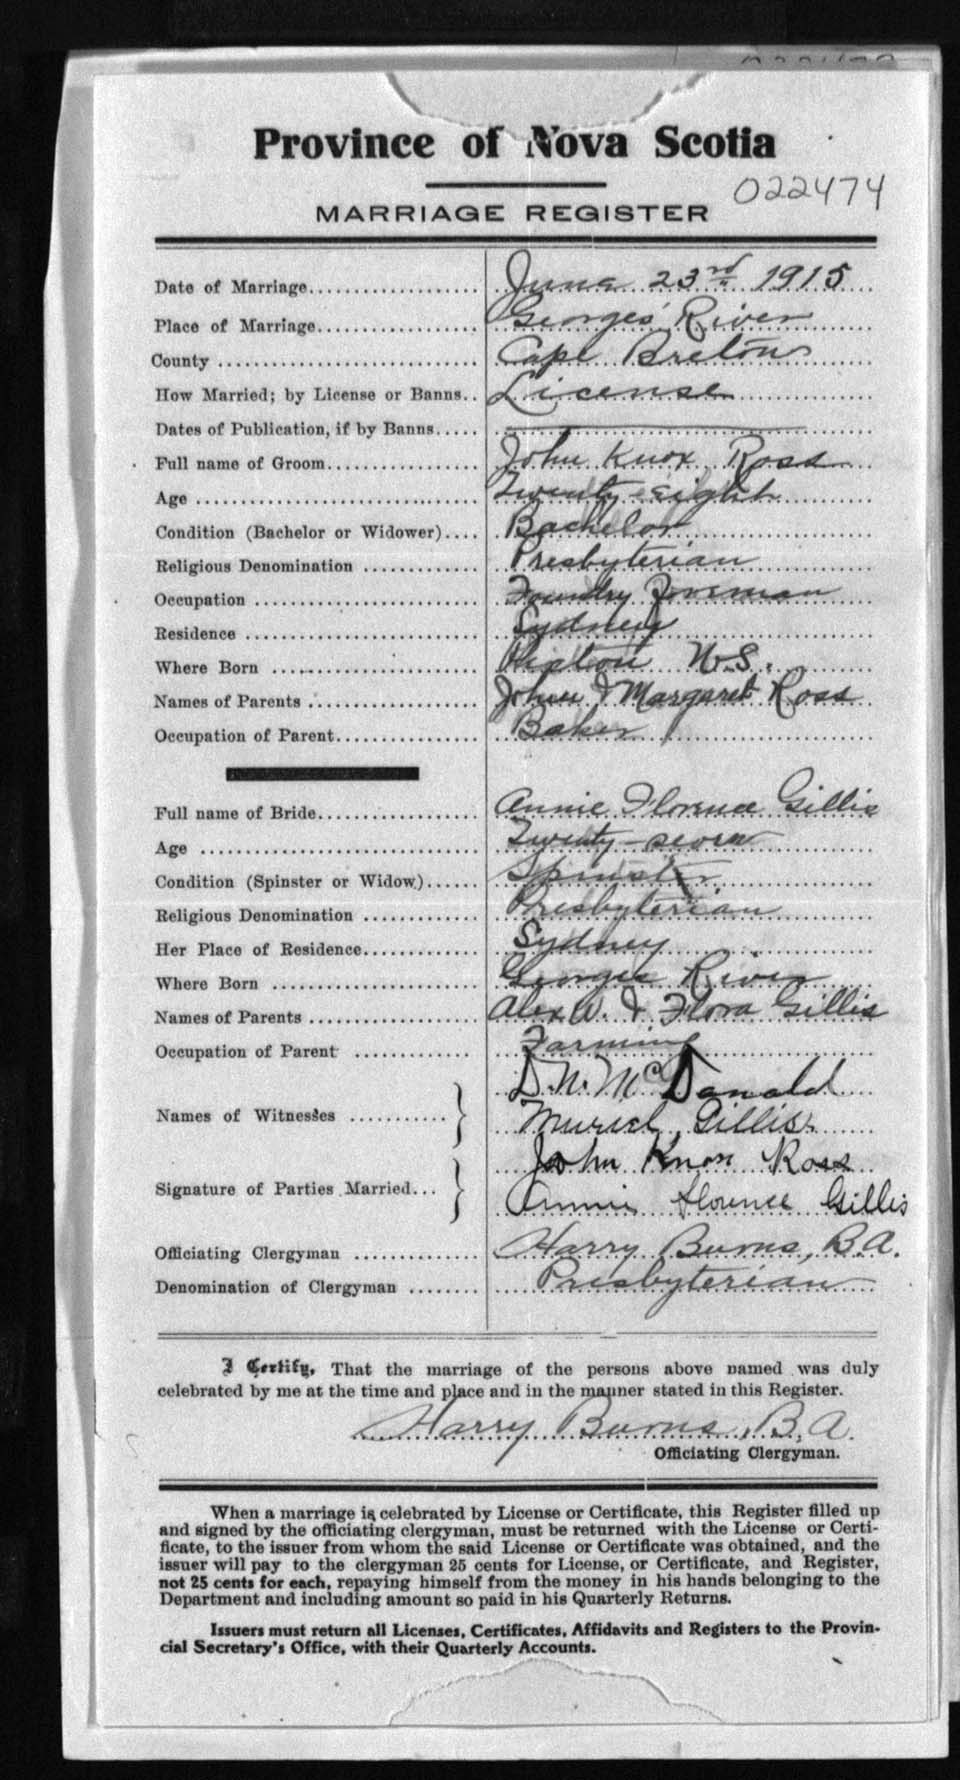 Province of Nova Scotia
022474
MARRIAGE REGISTER
Date of Marriage.................... June 23rd 1915
Place of Marriage................... Georges' River
County .............................. Cape Breton
How Married; by License or Banns.. License
Dates of Publication, if by Banns.....
Full name of Groom.................. John Knox Ross
Age ................................. Twenty-eight
Condition (Bachelor or Widower).... Bachelor
Religious Denomination ............. Presbyterian
Occupation .......................... Foundry Foreman
Residence ........................... Sydney
Where Born .......................... N.S.
Names of Parents .................... John & Margaret Ross
Occupation of Parent................. Baker
Full name of Bride................... Annie Florence Gillis
Age ................................. Twenty-seven
Condition (Spinster or Widow)...... Spinster
Religious Denomination ............. Presbyterian
Her Place of Residence............. Sydney
Where Born .......................... Georges River
Names of Parents .................... Alex W. & Flora Gillis
Occupation of Parent ............. Farming
D. N. McDonald
Names of Witnesses ...........
Muriel Gillis
John Knox Ross
Signature of Parties Married...
Annie Florence Gillis
Officiating Clergyman ............. Harry Burns, B.A.
Denomination of Clergyman ........ Presbyterian
I Certify, That the marriage of the persons above named was duly
celebrated by me at the time and place and in the manner stated in this Register.
Harry Burns, B.A.
Officiating Clergyman.
When a marriage is celebrated by License or Certificate, this Register filled up
and signed by the officiating clergyman, must be returned with the License or Certi-
ficate, to the issuer from whom the said License or Certificate was obtained, and the
issuer will pay to the clergyman 25 cents for License, or Certificate, and Register,
not 25 cents for each, repaying himself from the money in his hands belonging to the
Department and including amount so paid in his Quarterly Returns.
Issuers must return all Licenses, Certificates, Affidavits and Registers to the Provin-
cial Secretary's Office, with their Quarterly Accounts.